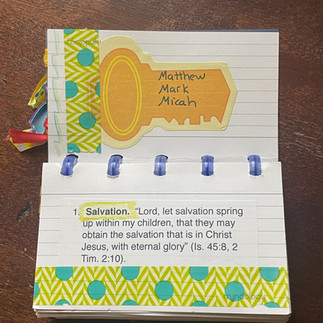 Matthew
Mark
Micah
1. Salvation. "Lord, let salvation spring
up within my children, that they may
obtain the salvation that is in Christ
Jesus, with eternal glory" (Is. 45:8, 2
Tim. 2:10).